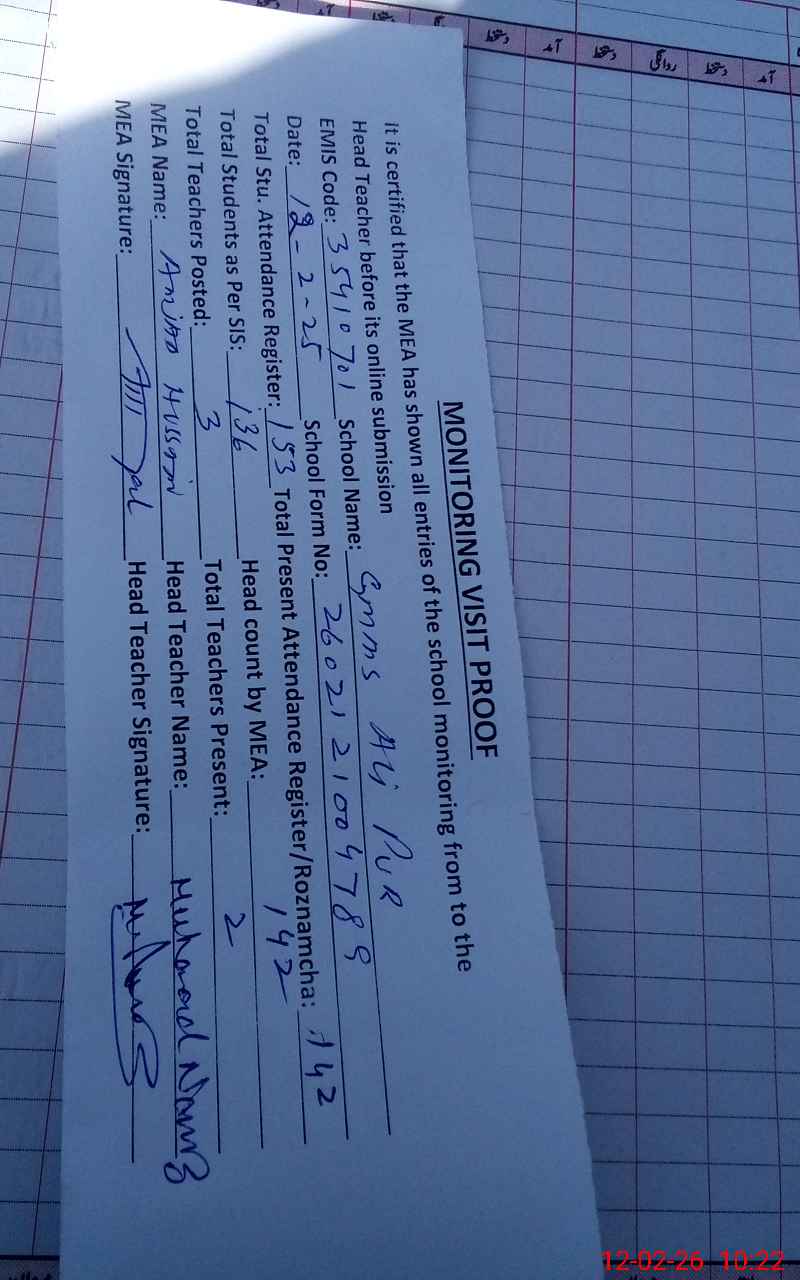 MONITORING VISIT PROOF
It is certified that the MEA has shown all entries of the school monitoring from to the
Head Teacher before its online submission
EMIS Code: 35410701 School Name: GMMS Ali PUR
Date: 12-2-25 School Form No: 2602121004789
Total Stu. Attendance Register: 153 Total Present Attendance Register/Roznamcha: 142
Total Students as Per SIS: 136 Head count by MEA: 142
Total Teachers Posted: 3 Total Teachers Present: 2
MEA Name: Amjad Hussain Head Teacher Name: Muhammad
MEA Signature: Head Teacher Signature:
12-02-26 10:22